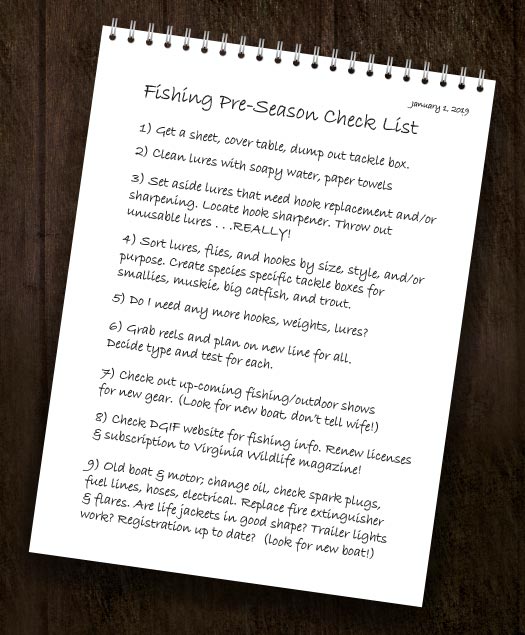 January 1, 2019
Fishing Pre-Season Check List
1) Get a sheet, cover table, dump out tackle box.
2) Clean lures with soapy water, paper towels
3) Set aside lures that need hook replacement and/or
sharpening. Locate hook sharpener. Throw out
unusable lures . . .REALLY!
4) Sort lures, flies, and hooks by size, style, and/or
purpose. Create species specific tackle boxes for
smallies, muskie, big catfish, and trout.
5) Do I need any more hooks, weights, lures?
6) Grab reels and plan on new line for all.
Decide type and test for each.
7) Check out up-coming fishing/outdoor shows
for new gear. (Look for new boat, don't tell wife!)
8) Check DGIF website for fishing info. Renew licenses
& subscription to Virginia Wildlife magazine!
9) Old boat & motor; change oil, check spark plugs,
fuel lines, hoses, electrical. Replace fire extinguisher
& flares. Are life jackets in good shape? Trailer lights
work? Registration up to date? (look for new boat!)